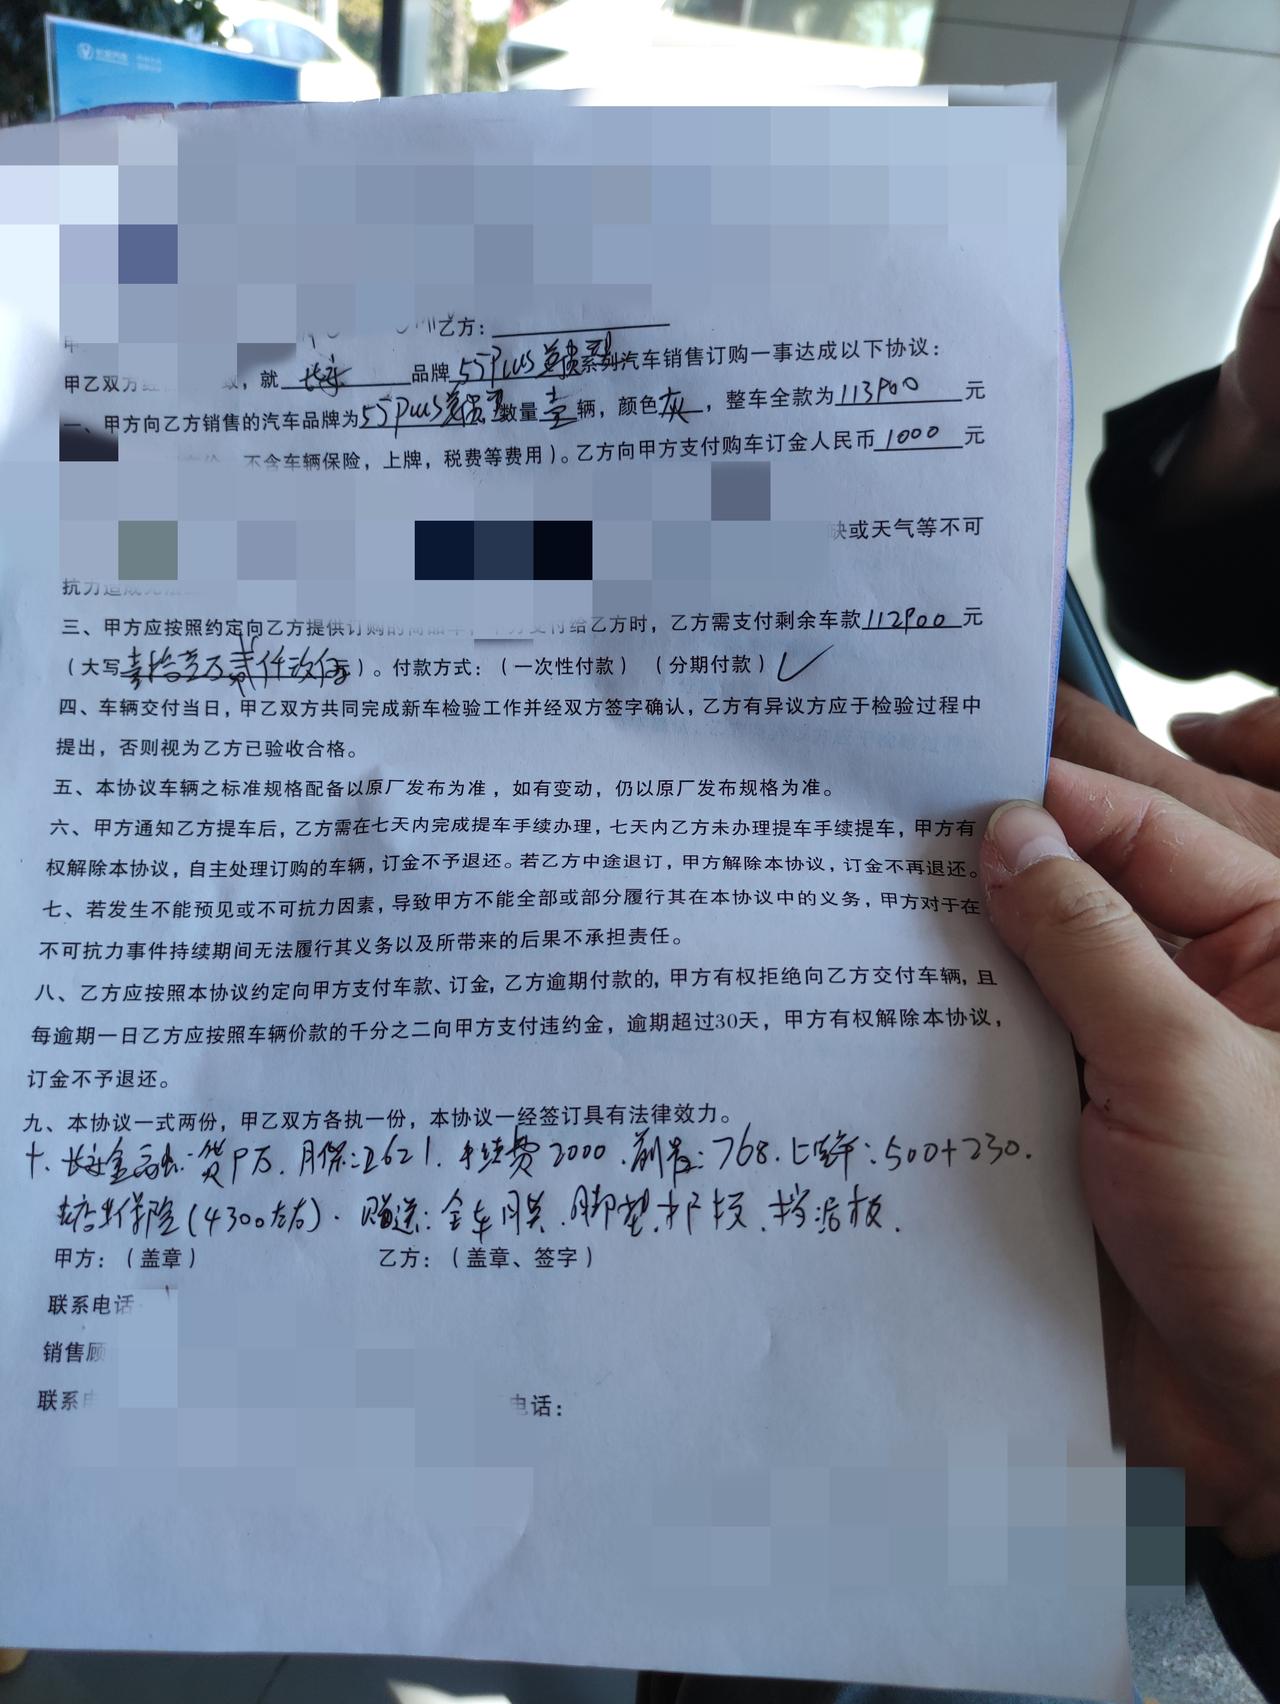 长安汽车
乙方：
甲乙双方 就 长安 品牌 55Plus 系列汽车销售订购一事达成以下协议：
一、甲方向乙方销售的汽车品牌为55Plus 数量壹辆，颜色灰，整车全款为113900元
不含车辆保险，上牌，税费等费用）。乙方向甲方支付购车订金人民币1000元
缺或天气等不可
抗力造成无法
三、甲方应按照约定向乙方提供订购的商品车，甲方交付给乙方时，乙方需支付剩余车款112900元
（大写壹拾壹万贰仟玖佰元）。付款方式：（一次性付款）（分期付款）✓
四、车辆交付当日，甲乙双方共同完成新车检验工作并经双方签字确认，乙方有异议方应于检验过程中
提出，否则视为乙方已验收合格。
五、本协议车辆之标准规格配备以原厂发布为准，如有变动，仍以原厂发布规格为准。
六、甲方通知乙方提车后，乙方需在七天内完成提车手续办理，七天内乙方未办理提车手续提车，甲方有
权解除本协议，自主处理订购的车辆，订金不予退还。若乙方中途退订，甲方解除本协议，订金不再退还。
七、若发生不能预见或不可抗力因素，导致甲方不能全部或部分履行其在本协议中的义务，甲方对于在
不可抗力事件持续期间无法履行其义务以及所带来的后果不承担责任。
八、乙方应按照本协议约定向甲方支付车款、订金，乙方逾期付款的，甲方有权拒绝向乙方交付车辆，且
每逾期一日乙方应按照车辆价款的千分之二向甲方支付违约金，逾期超过30天，甲方有权解除本协议，
订金不予退还。
九、本协议一式两份，甲乙双方各执一份，本协议一经签订具有法律效力。
十、长安金融 贷9万．月供：2621．手续费2000．768．上牌：500+230．
保险（4300左右）．赠送：全车膜．脚垫．护板．挡泥板．
甲方：（盖章） 乙方：（盖章、签字）
联系电话
销售顾
联系电 电话：